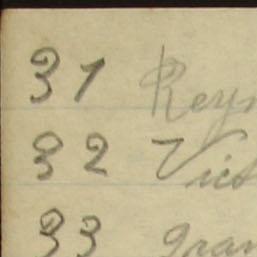 31 Rey
32 Vict
33 gran